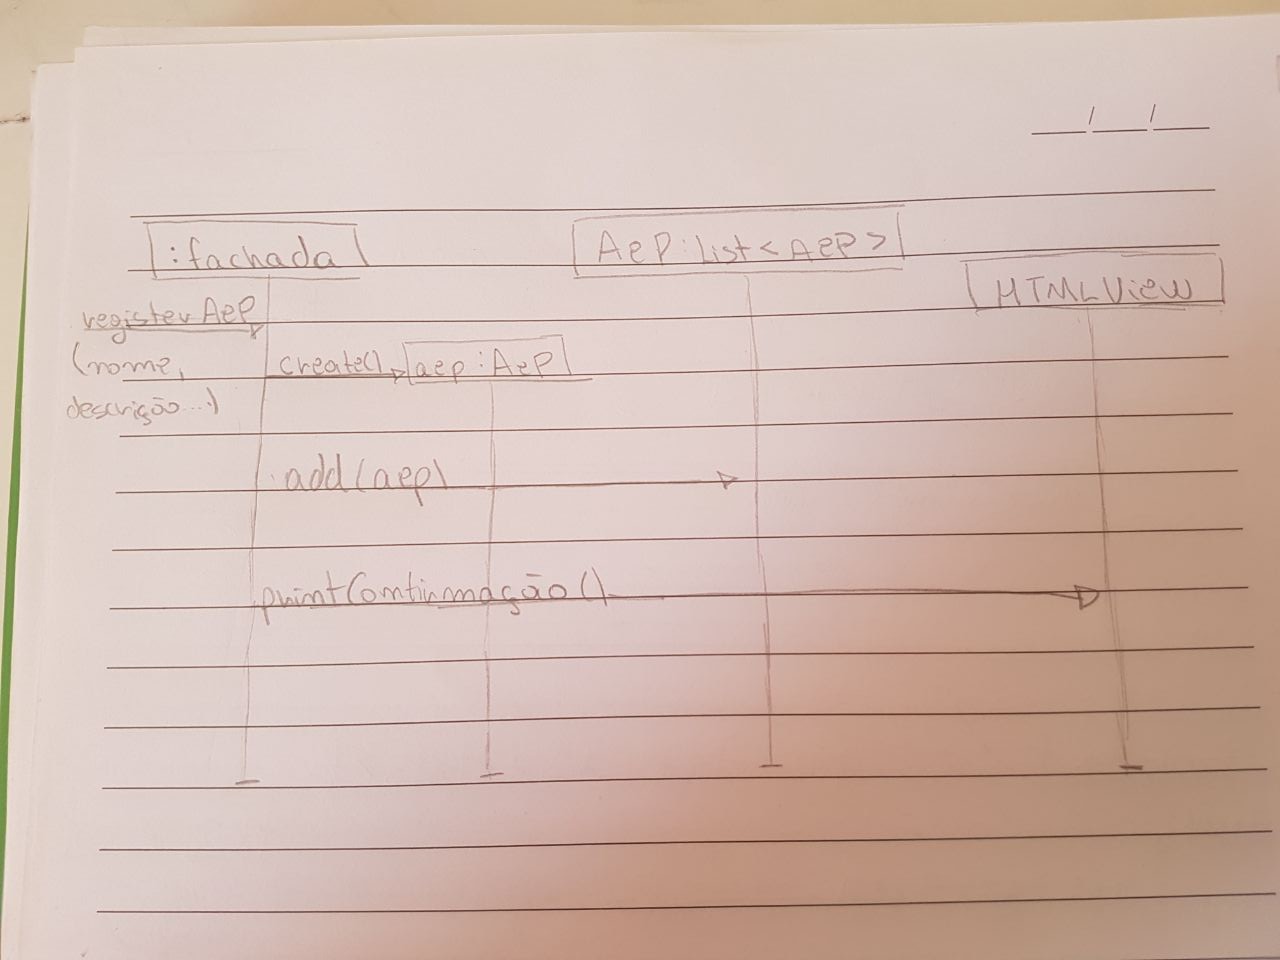 :fachada
AeP:List<AeP>
HTMLView
registerAeP
(nome,
descrição...)
create()
aep:AeP
add(aep)
printConfirmação()